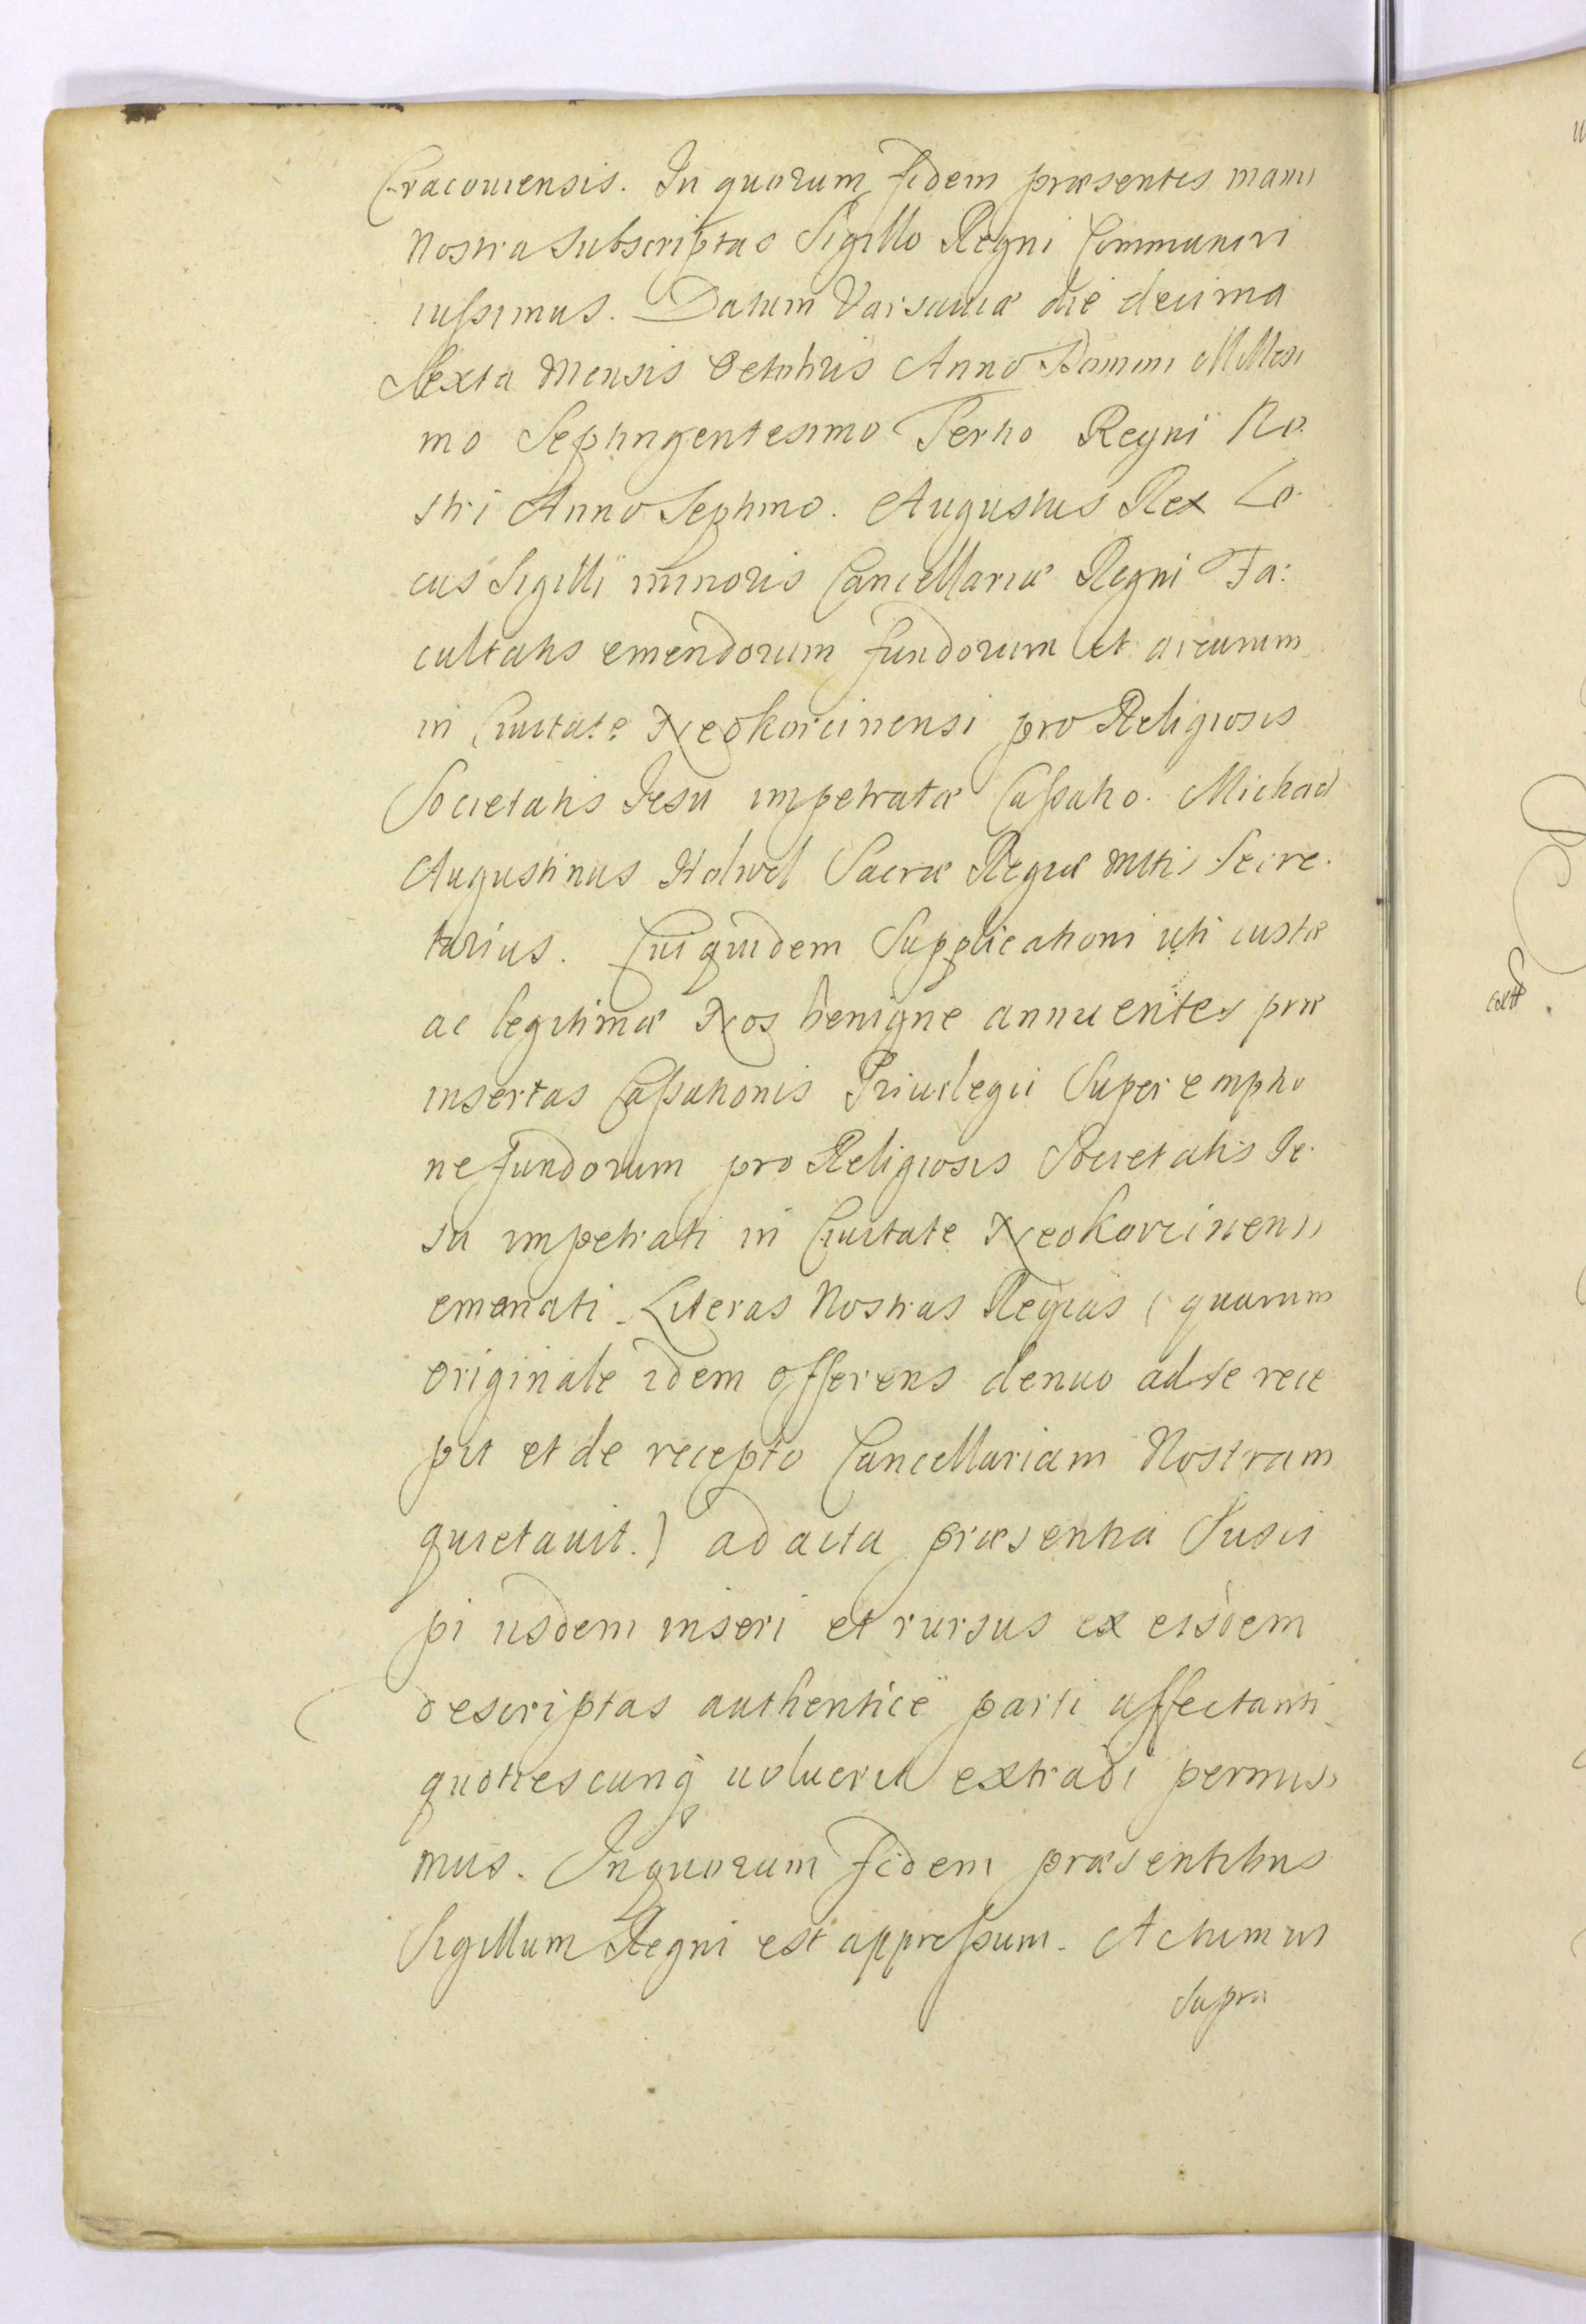 Cracouiensis. In quorum fidem præsentes manu
Nostra Subscriptas Sigillo Regni Communiri
iussimus. Datum Varsauiæ die decima
Sexta Mensis Octobris Anno Domini Millesi
mo Septingentesimo Tertio Regni No.
stri Anno Septimo. Augustus Rex Lo.
cus Sigilli minoris Cancellariæ Regni Fa:
cultatis emendorum fundorum et arearum
in Ciuitate Neokorcinensi pro Religiosis
Societatis Iesu impetratæ Cassatio. Michael
Augustinus Sacræ Regiæ Mttis Secre.
tarius. Cui quidem Supplicationi uti iustæ
ac legitimæ Nos benigne annuentes præ
insertas Cassationis Priuilegii Super emptio
ne fundorum pro Religiosis Societatis Ie.
su impetrati in Ciuitate Neokorcinensi
emanati Literas Nostras Regias ( quarum
originale idem offerens denuo ad se rece
pit et de recepto Cancellariam Nostram
quietauit.) ad acta præsentia Susci
pi iisdem inseri et rursus ex eisdem
descriptas authentice parti affectanti
quotiescunq uoluerit extradi permisi
mus. In quorum fidem præsentibus
Sigillum Regni est appressum. Actum ut
Supra